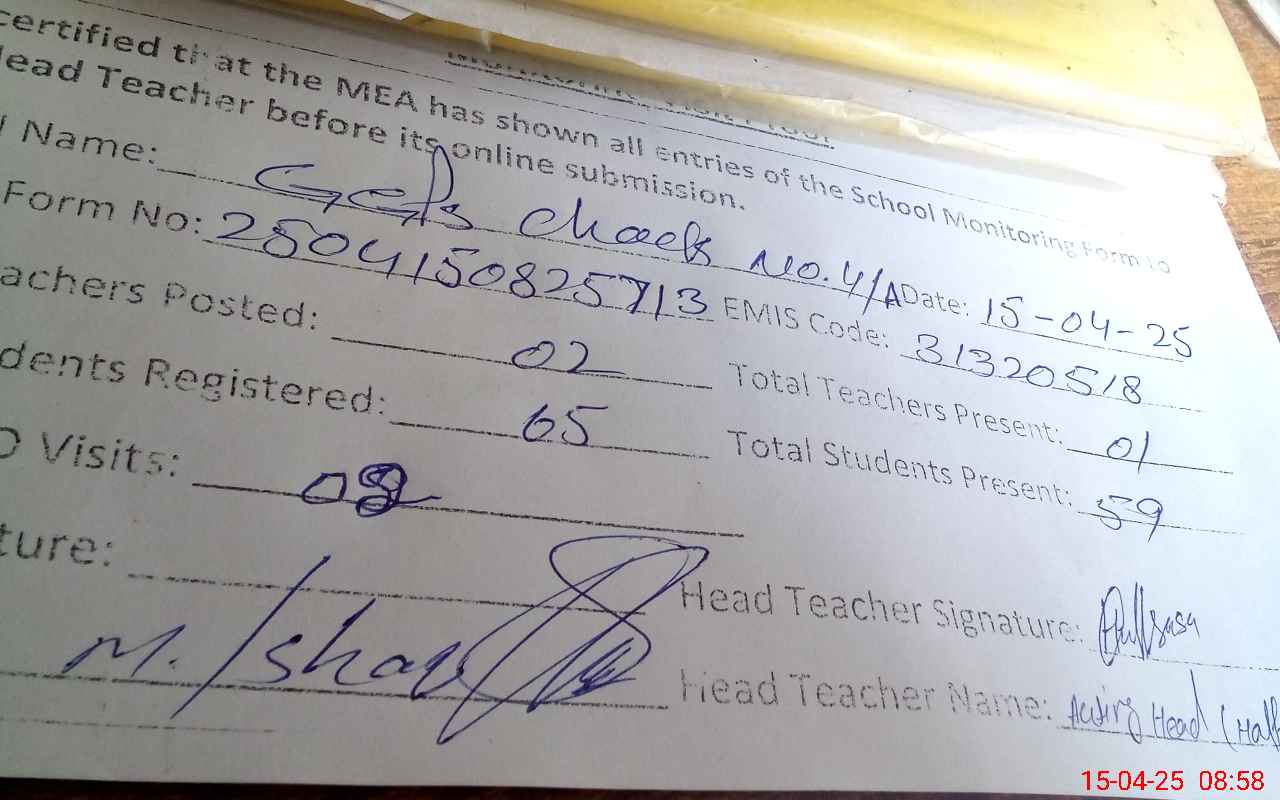 certified that the MEA has shown all entries of the School Monitoring Form to
Head Teacher before its online submission.
Name: GGPS Chack No. 4/A Date: 15-04-25
Form No: 2504150825713 EMIS Code: 31320518
achers Posted: 02 Total Teachers Present: 01
dents Registered: 65 Total Students Present: 59
Visits: 02
ture: Head Teacher Signature:
M. Ishaq Head Teacher Name: Acting Head (Haf
15-04-25 08:58